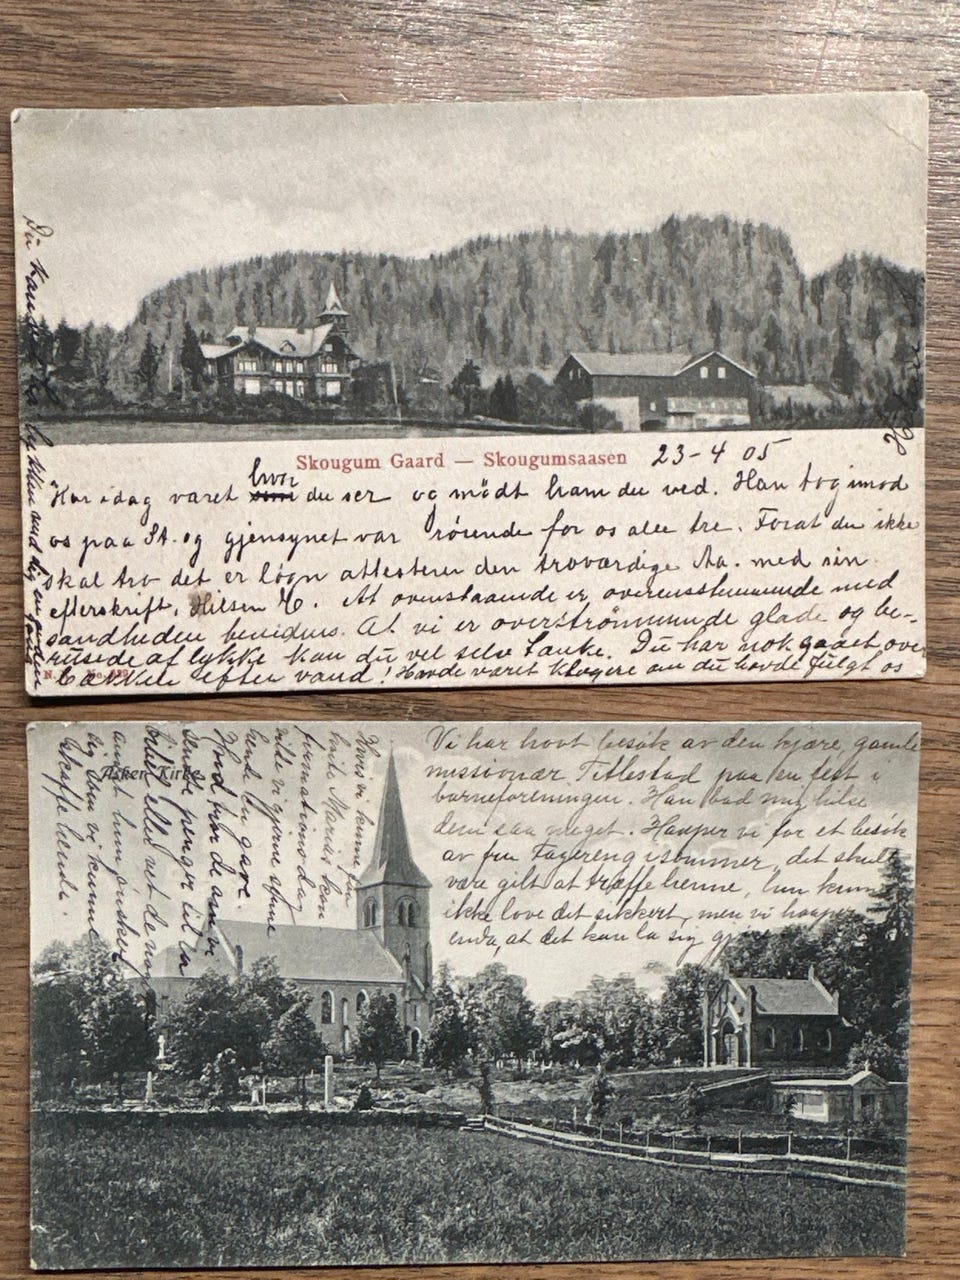 Skougum Gaard — Skougumsaasen
23-4 05
Har idag varet hvor du ser og mødt ham du ved. Han tog imod
os paa St. og gjensynet var rørende for os alle tre. Forat du ikke
skal tro det er løgn attesterer den troværdige Aa. med sin
efterskrift. Hilsen
At ovenstaaende er overensstemmende med
sandheden bevidnes. At vi er overstrømmende glade og be-
rusede af lykke kan du vel selv tænke. Du har nok gaaet over
bækken efter vand! Havde været klogere om du havde fulgt os
Du kan
lykken med dig en anden
gang
Asker Kirke
Vi har havt besøk av den kjære, gamle
missionær Tittestad paa en fest i
barneforeningen. Han bad mig hilse
dem saa meget. Haaper vi faar et besøk
av fru Fagereng isommer, det skulde
være gilt at træffe henne, hun kunne
ikke love det sikkert, men vi haaper
enda, at det kan la sig gjøre
Hvis vi kunne faa
hvite Marias kon
firmationsdag
vilde vi gjerne sende
hende en gave.
Hvad tror de om at
sende penger til en
eller ved de noget
andet hun ønsker
sig som vi kunne
skaffe hende.